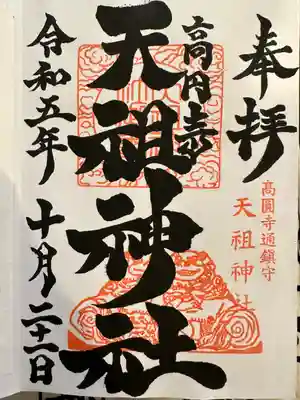 奉拝
高圓寺通鎮守
天祖神社
高円寺
天祖神社
令和五年十月二十一日